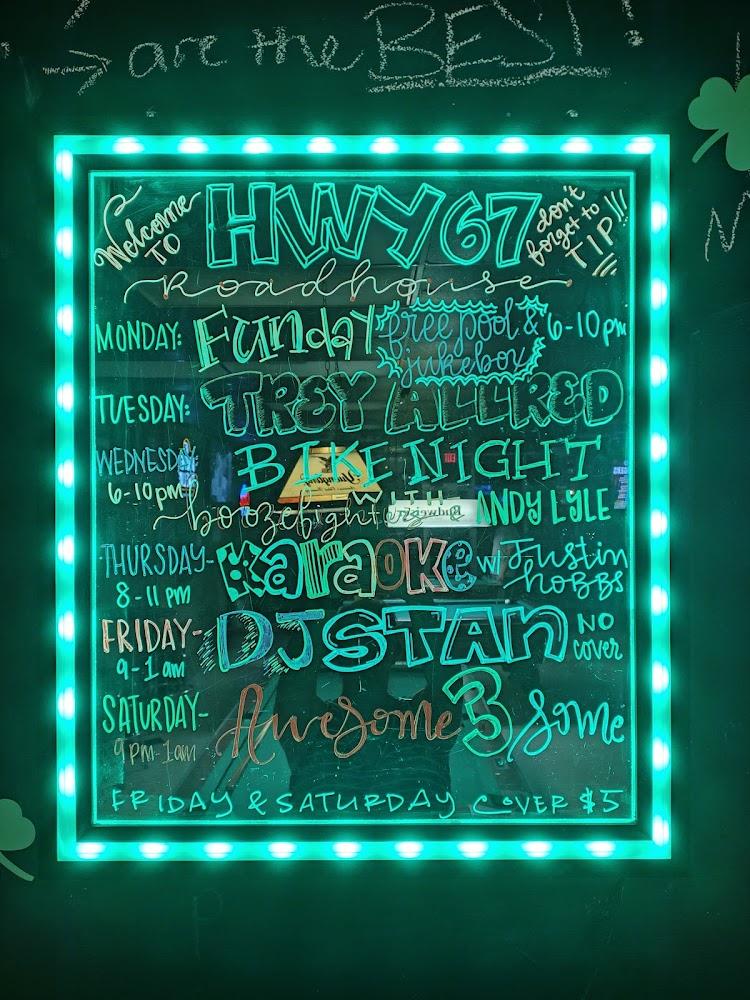 are the BEST!
Welcome TO HWY 67 don't forget to TIP!!!
Roadhouse
MONDAY: Funday free pool & jukebox 6-10pm
TUESDAY: TREY ALLRED
WEDNESDAY BIKE NIGHT
6-10pm boozefighters WITH ANDY LYLE
THURSDAY- Karaoke w/ Justin Hobbs
8-11 pm
FRIDAY- DJ STAN NO cover
9-1am
SATURDAY- Awesome 3 Some
9pm-1am
FRIDAY & SATURDAY COVER $5
Yuengling
Budweiser
EXIT